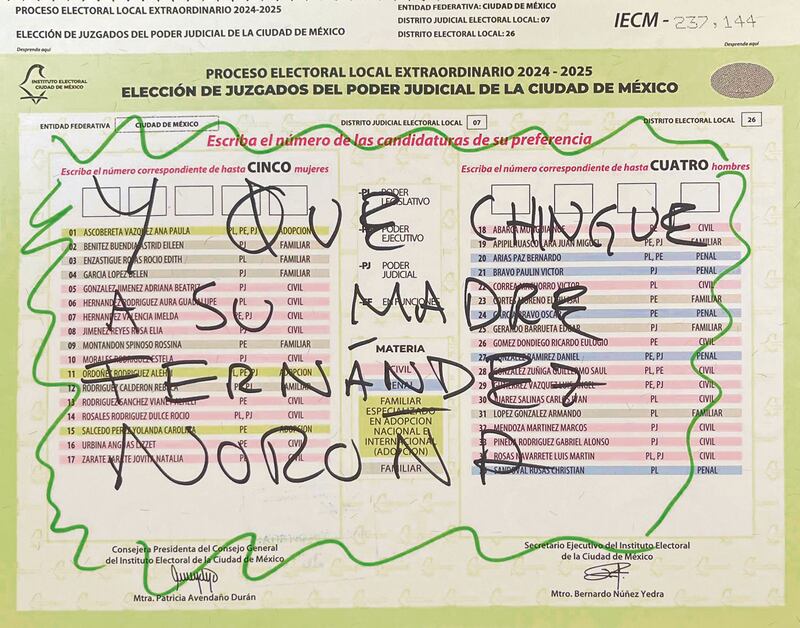 PROCESO ELECTORAL LOCAL EXTRAORDINARIO 2024-2025
ELECCIÓN DE JUZGADOS DEL PODER JUDICIAL DE LA CIUDAD DE MÉXICO
Desprenda aquí
ENTIDAD FEDERATIVA: CIUDAD DE MÉXICO
DISTRITO JUDICIAL ELECTORAL LOCAL: 07
DISTRITO ELECTORAL LOCAL: 26
IECM - 237,144
Desprenda aquí
INSTITUTO ELECTORAL
CIUDAD DE MÉXICO
PROCESO ELECTORAL LOCAL EXTRAORDINARIO 2024 - 2025
ELECCIÓN DE JUZGADOS DEL PODER JUDICIAL DE LA CIUDAD DE MÉXICO
ENTIDAD FEDERATIVA CIUDAD DE MÉXICO DISTRITO JUDICIAL ELECTORAL LOCAL 07 DISTRITO ELECTORAL LOCAL 26
Escriba el número de las candidaturas de su preferencia
Escriba el número correspondiente de hasta CINCO mujeres
01 ASCOBERETA VAZQUEZ ANA PAULA PL, PE, PJ ADOPCION
02 BENITEZ BUENDIA ASTRID EILEEN PJ FAMILIAR
03 ENZASTIGUE ROJAS ROCIO EDITH PL FAMILIAR
04 GARCIA LOPEZ BELEN PJ FAMILIAR
05 GONZALEZ JIMENEZ ADRIANA BEATRIZ PJ CIVIL
06 HERNANDEZ RODRIGUEZ AURA GUADALUPE PL CIVIL
07 HERNANDEZ VALENCIA IMELDA PE, PJ CIVIL
08 JIMENEZ REYES ROSA ELIA PJ CIVIL
09 MONTANDON SPINOSO ROSSINA PE FAMILIAR
10 MORALES RODRIGUEZ ESTELA PJ CIVIL
11 ORDOÑEZ RODRIGUEZ PL, PE, PJ ADOPCION
12 RODRIGUEZ CALDERON PE FAMILIAR
13 RODRIGUEZ SANCHEZ PE CIVIL
14 ROSALES RODRIGUEZ DULCE ROCIO PL, PJ CIVIL
15 SALCEDO PEREZ YOLANDA CAROLINA PE ADOPCION
16 URBINA ANGUAS LIZZET PE CIVIL
17 ZARATE ZARATE JOVITA NATALIA PL CIVIL
-PL PODER LEGISLATIVO
PODER EJECUTIVO
-PJ PODER JUDICIAL
-EF EN FUNCIONES
MATERIA
CIVIL
PENAL
FAMILIAR
ESPECIALIZADO
EN ADOPCION
NACIONAL E
INTERNACIONAL
(ADOPCION)
FAMILIAR
Escriba el número correspondiente de hasta CUATRO hombres
18 ABARCA MUNGUIA PL CIVIL
19 APIPILHUASCO LARA JUAN MIGUEL PE, PJ FAMILIAR
20 ARIAS PAZ BERNARDO PL, PE PENAL
21 BRAVO PAULIN VICTOR PJ PENAL
22 CORREA MACHORRO VICTOR PL CIVIL
23 CORTES MORENO PE FAMILIAR
24 BRAVO OSCAR PL PENAL
25 GERALDO BARRUETA EDGAR PJ FAMILIAR
26 GOMEZ DONDIEGO RICARDO EULOGIO PL CIVIL
27 GONZALEZ RAMIREZ DANIEL PE, PJ PENAL
28 GONZALEZ ZUÑIGA GUILLERMO SAUL PL, PE CIVIL
29 GUTIERREZ VAZQUEZ PE, PJ CIVIL
30 JUAREZ SALINAS CARLOS PL CIVIL
31 LOPEZ GONZALEZ ARMANDO PL FAMILIAR
32 MENDOZA MARTINEZ MARCOS PJ CIVIL
33 PINEDA RODRIGUEZ GABRIEL ALONSO PJ CIVIL
ROSAS NAVARRETE LUIS MARTIN PL, PJ CIVIL
SANDOVAL ROSAS CHRISTIAN PL PENAL
Y QUE CHINGUE
A SU MADRE
FERNÁNDEZ
NOROÑA
Consejera Presidenta del Consejo General
del Instituto Electoral de la Ciudad de México
Mtra. Patricia Avendaño Durán
Secretario Ejecutivo del Instituto Electoral
de la Ciudad de México
Mtro. Bernardo Núñez Yedra